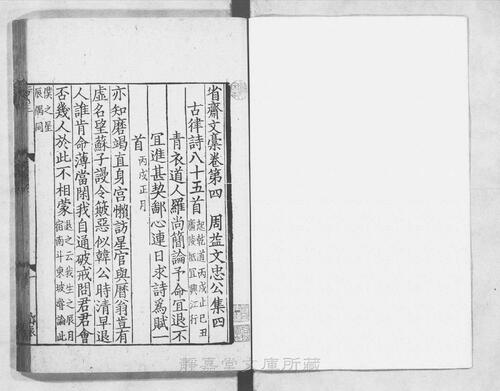 省齋文藁卷第四　周益文忠公集四
古律詩八十五首 起乾道丙戌止己丑
廬陵抵宜興江行
青衣道人羅尚簡論予命宜退不
宜進甚契鄙心連日求詩爲賦一
首 丙戌正月
亦知磨蝎直身宮懶訪星官與曆翁豈有
虛名望蘇子謾令簸惡似韓公時清早退
人誰肯命薄當閑我自通破戒問君君會
否幾人於此不相蒙 退之云我生之辰月
宿南斗東坡嘗論此
僕之星
辰偶同
靜嘉堂文庫所藏